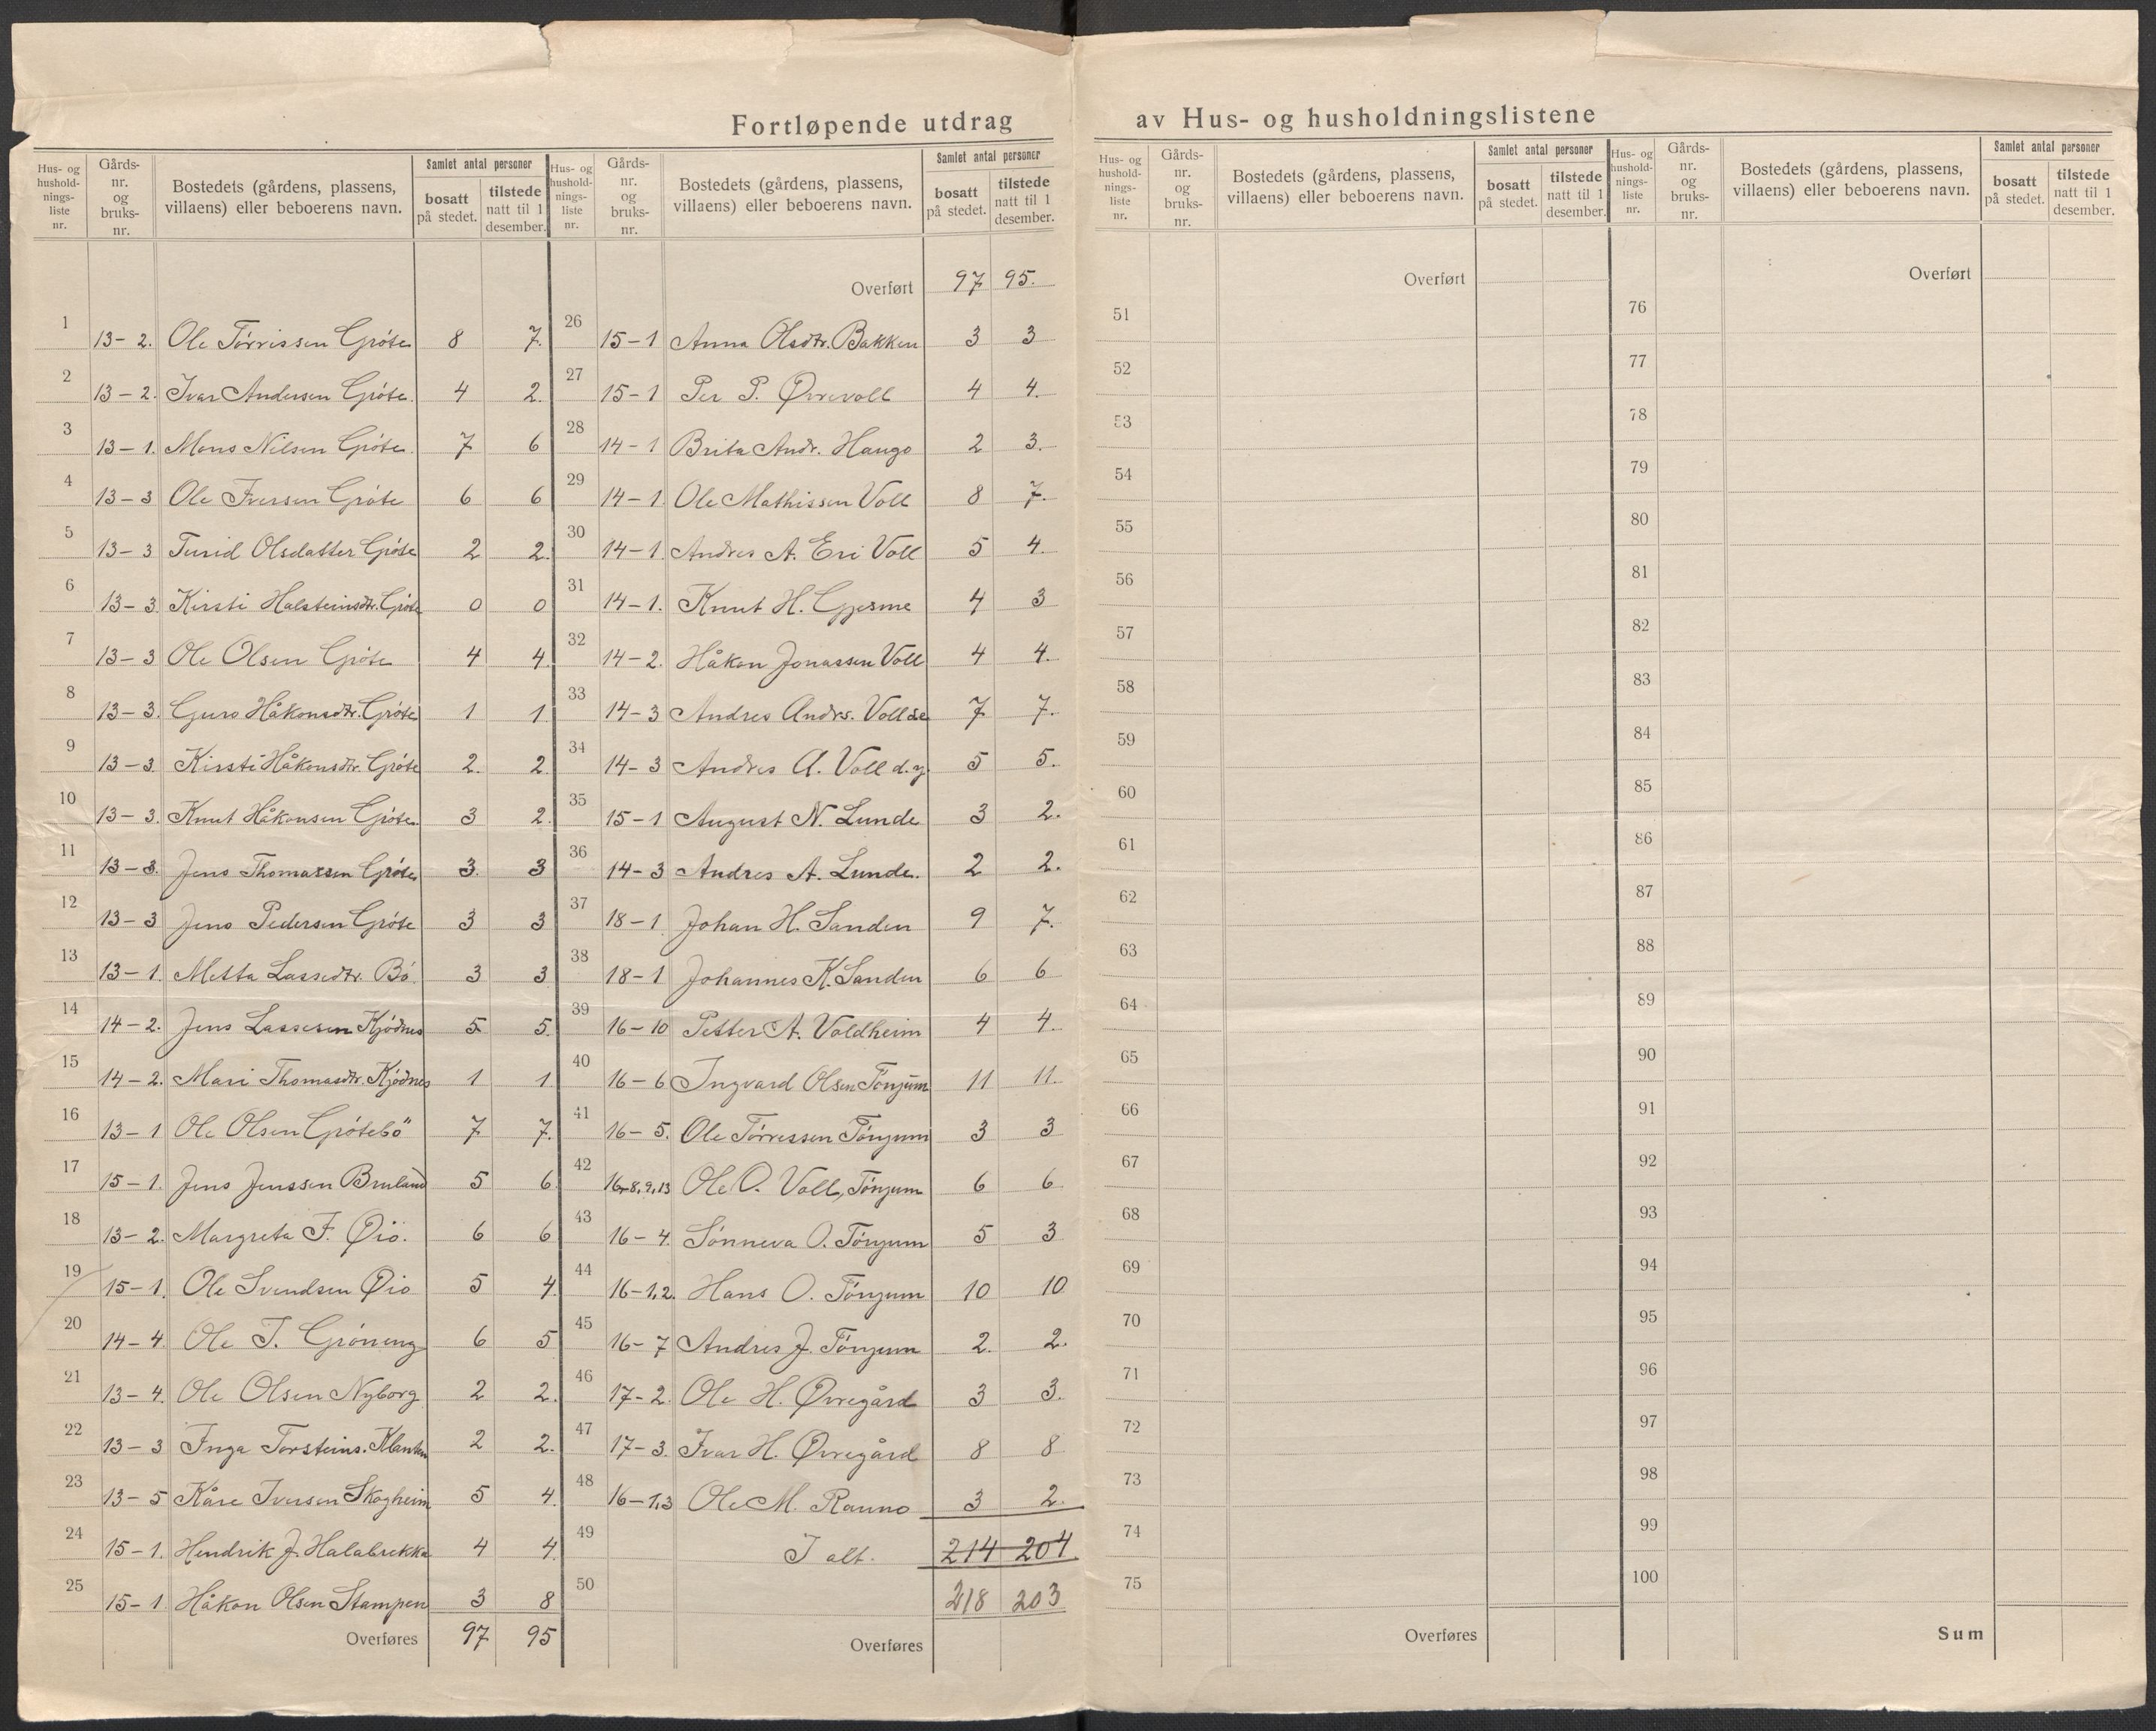 Fortløpende utdrag av Hus- og husholdningslistene
Hus- og hushold-nings-liste nr. | Gårds-nr. og bruks-nr. | Bostedets (gårdens, plassens, villaens) eller beboerens navn. | Samlet antal personer | bosatt på stedet. | tilstede natt til 1 desember.
1 13-2. Ole Tórrissen Gróte 8 7.
2 13-2. Ivar Andersen Gróte. 4 2.
3 13-1. Mons Nilsen Gróte. 7 6
4 13-3 Ole Iversen Gróte 6 6
5 13-3 Turid Olsdatter Gróte 2 2.
6 13-3. Kirsti Halsteinsdtr. Gróte 0 0
7 13-3 Ole Olsen Gróte 4 4
8 13-3. Guro Håkonsdtr. Gróte 1 1
9 13-3. Kirsti Håkonsdtr. Gróte 2. 2
10 13-3. Knut Håkonsen Gróte. 3 2.
11 13-3. Jens Thomassen Gróte 3. 3
12 13-3 Jens Pedersen Gróte 3 3
13 13-1. Metta Lassedtr. Bó. 3 3
14 14-2. Jens Lassesen Kjódnes 5 5.
15 14-2. Mari Thomasdtr. Kjódnes 1 1
16 13-1 Ole Olsen Grótebö 7 7.
17 15-1. Jens Jenssen Bruland 5 6
18 13-2. Margreta J. Øiö. 6 6
19 15-1. Ole Svendsen Øio 5 4.
20 14-4. Ole T. Gróneng 6 5
21 13-4. Ole Olsen Nyborg 2 2.
22 13-3 Inga Torsteins. Klanten 2 2.
23 13-5 Kåre Iversen Skogheim 5 4.
24 15-1. Hendrik J. Halabrekka 4 4.
25 15-1. Håkon Olsen Stampen 3 8
Overføres 97 95
Hus- og hushold-nings-liste nr. | Gårds-nr. og bruks-nr. | Bostedets (gårdens, plassens, villaens) eller beboerens navn. | Samlet antal personer | bosatt på stedet. | tilstede natt til 1 desember.
Overført 97 95.
26 15-1 Anna Olsdtr. Bakken 3 3
27 15-1 Per P. Øvrevoll 4 4.
28 14-1 Brita Andr. Haugo 2 3.
29 14-1. Ole Mathissen Voll 8 7.
30 14-1. Andres A. Eri Voll 5 4.
31 14-1. Knut H. Gjesme 4 3
32 14-2. Håkon Jonassen Voll 4 4.
33 14-3 Andres Andrs. Voll d.e 7 7.
34 14-3 Andres A. Voll d.y. 5 5.
35 15-1 August N. Lunde 3 2.
36 14-3 Andres A. Lunde. 2 2.
37 18-1 Johan H. Sanden 9 7.
38 18-1 Johannes K. Sanden 6 6
39 16-10 Petter A. Voldheim 4 4.
40 16-6 Ingvard Olsen Tónjum 11 11.
41 16-5. Ole Tórressen Tónjum 3 3
42 16-8,9,13 Ole O. Voll, Tónjum 6 6
43 16-4. Sónneva O. Tónjum 5 3
44 16-1,2. Hans O. Tónjum 10 10
45 16-7 Andres J. Tónjum 2. 2.
46 17-2. Ole H. Øvregård 3 3.
47 17-3. Ivar H. Øvregård 8 8
48 16-1,3 Ole M. Rauno 3 2.
49 I alt. 214 204
50 218 203
Overføres
Hus- og hushold-nings-liste nr. | Gårds-nr. og bruks-nr. | Bostedets (gårdens, plassens, villaens) eller beboerens navn. | Samlet antal personer | bosatt på stedet. | tilstede natt til 1 desember.
Overført
51
52
53
54
55
56
57
58
59
60
61
62
63
64
65
66
67
68
69
70
71
72
73
74
75
Overføres
Hus- og hushold-nings-liste nr. | Gårds-nr. og bruks-nr. | Bostedets (gårdens, plassens, villaens) eller beboerens navn. | Samlet antal personer | bosatt på stedet. | tilstede natt til 1 desember.
Overført
76
77
78
79
80
81
82
83
84
85
86
87
88
89
90
91
92
93
94
95
96
97
98
99
100
Sum